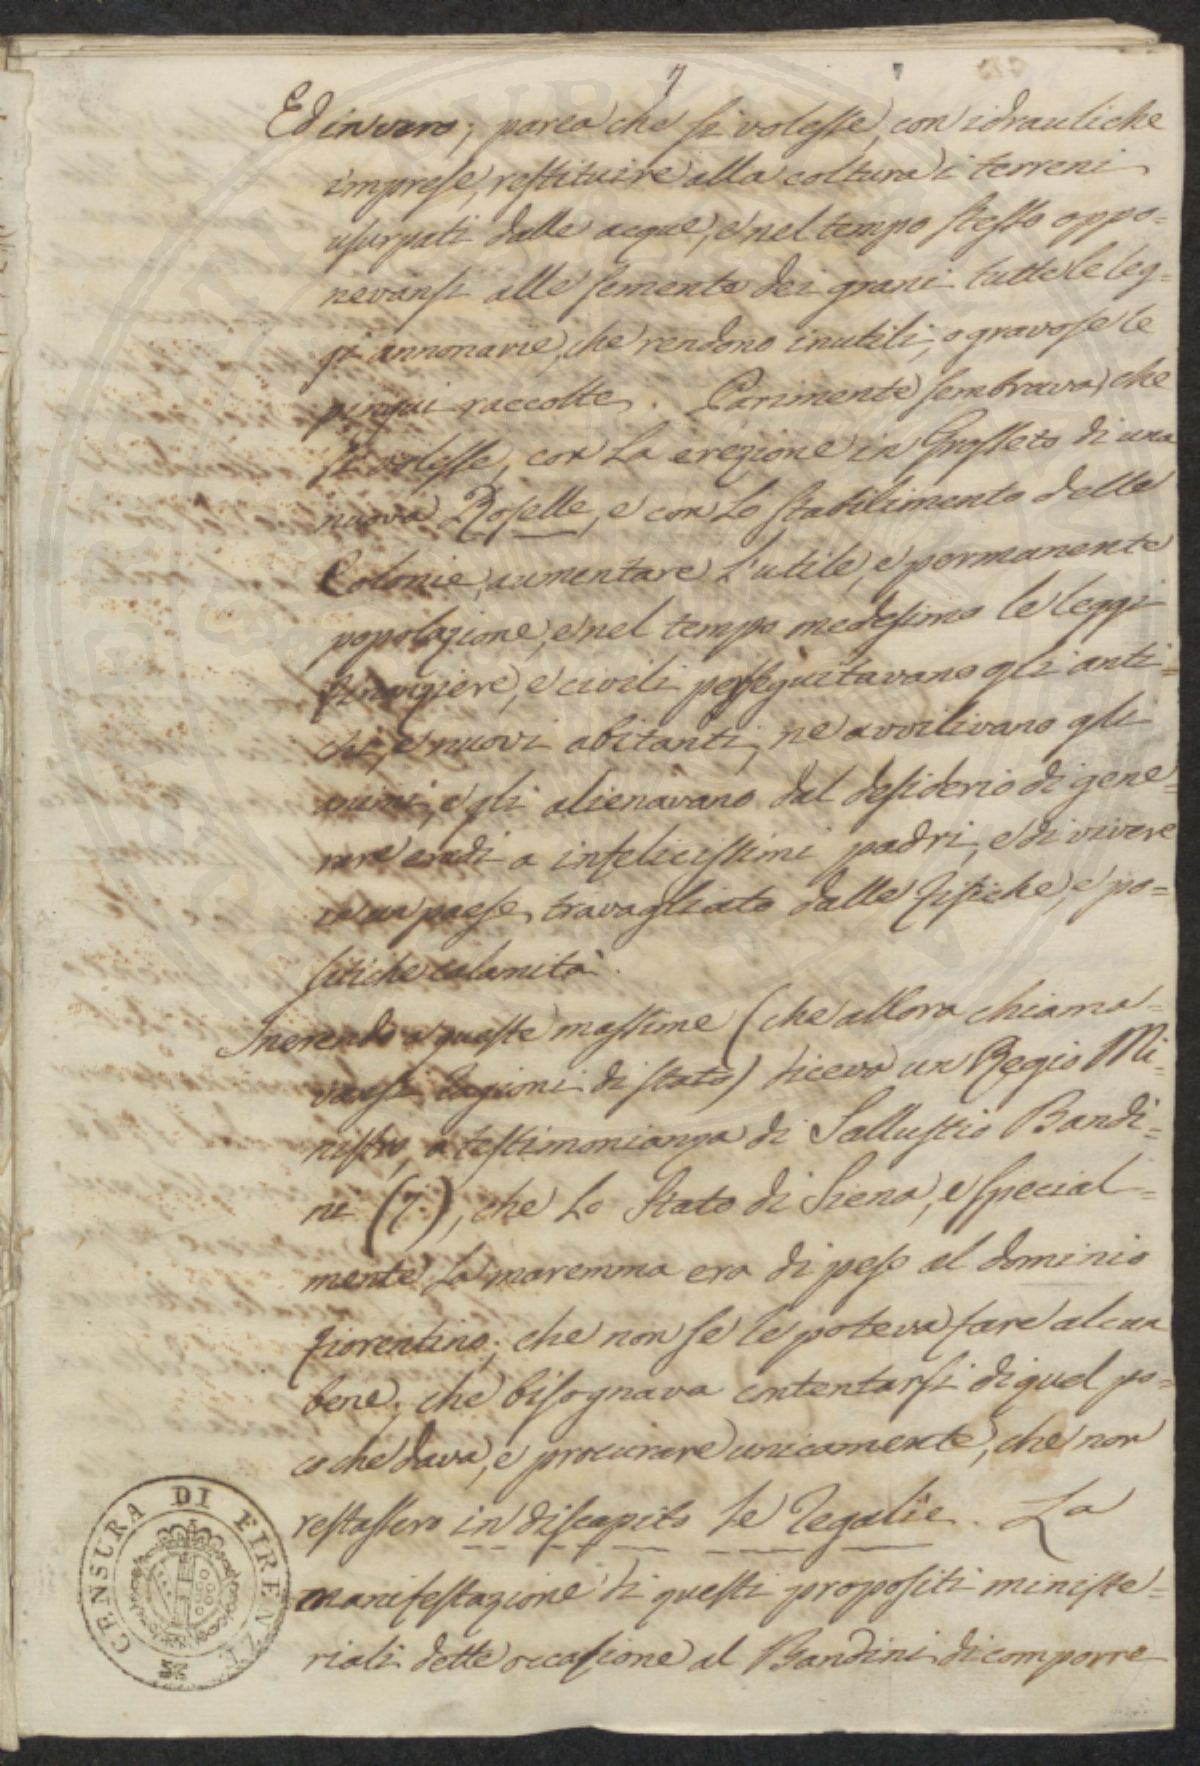 7
Ed in vero, parea che si volesse, con idrauliche
imprese, restituire alla coltura i terreni
usurpati dalle acque, e nel tempo stesso oppo=
nevansi alle sementa dei grani tutte le leg=
gi annonarie, che rendono inutili, o gravose le
pingui raccolte. Parimente sembrava, che
si volesse, con la erezione in Grosseto di una
nuova Roselle, e con lo stabilimento delle
Colonie, aumentare l'utile, e permanente
popolazione, e nel tempo medesimo le leggi
finanziere, e civili perseguitavano gli anti=
chi, e nuovi abitanti, ne avvilivano gli
animi, e gli alienavano dal desiderio di gene=
rare eredi a infelicissimi padri, e di vivere
in un paese travagliato dalle fisiche, e po=
litiche calamità.
Inerendo a queste massime (che allora chiama=
vansi ragioni di stato) diceva un Regio Mi=
nistro, a testimonianza di Sallustio Bandi=
ni (7.), che lo Stato di Siena, e special=
mente la maremma era di peso al dominio
fiorentino; che non se le poteva fare alcun
bene; che bisognava contentarsi di quel po=
co che dava, e procurare unicamente, che non
restassero in discapito le regalie. La
manifestazione di questi propositi ministe=
riali dette occasione al Bandini di comporre
CENSURA DI FIRENZE